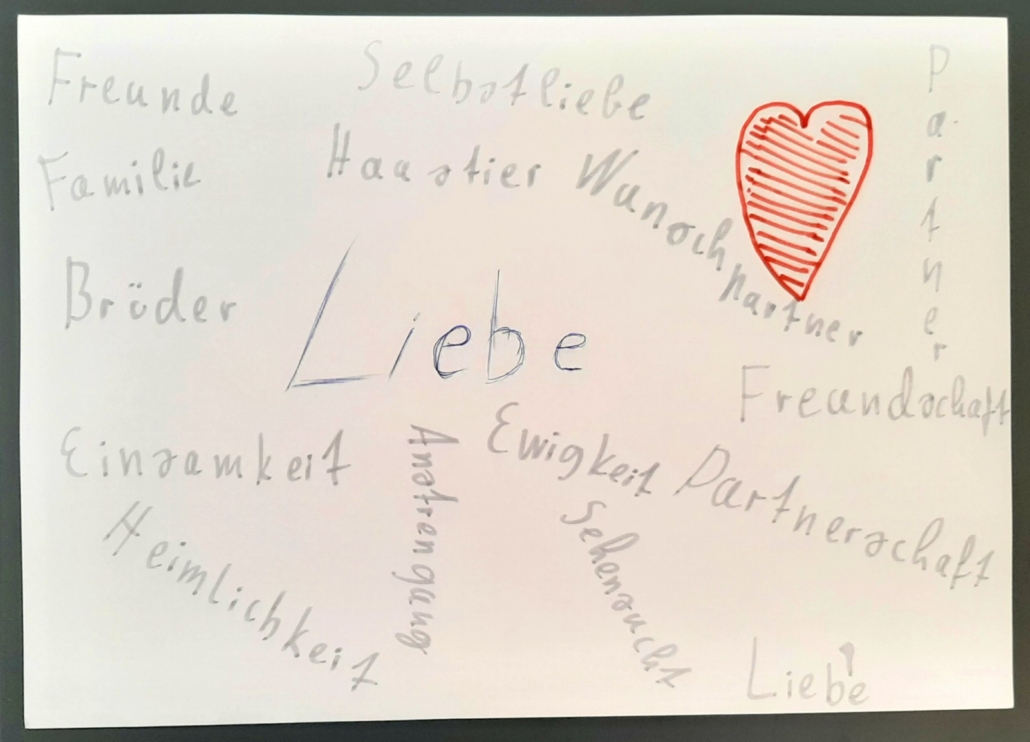 Freunde
Selbstliebe
Partner
Familie
Haustier
Wunschpartner
Brüder
Liebe
Freundschaft
Einsamkeit
Anstrengung
Ewigkeit
Partnerschaft
Heimlichkeit
Sehensucht
Liebe